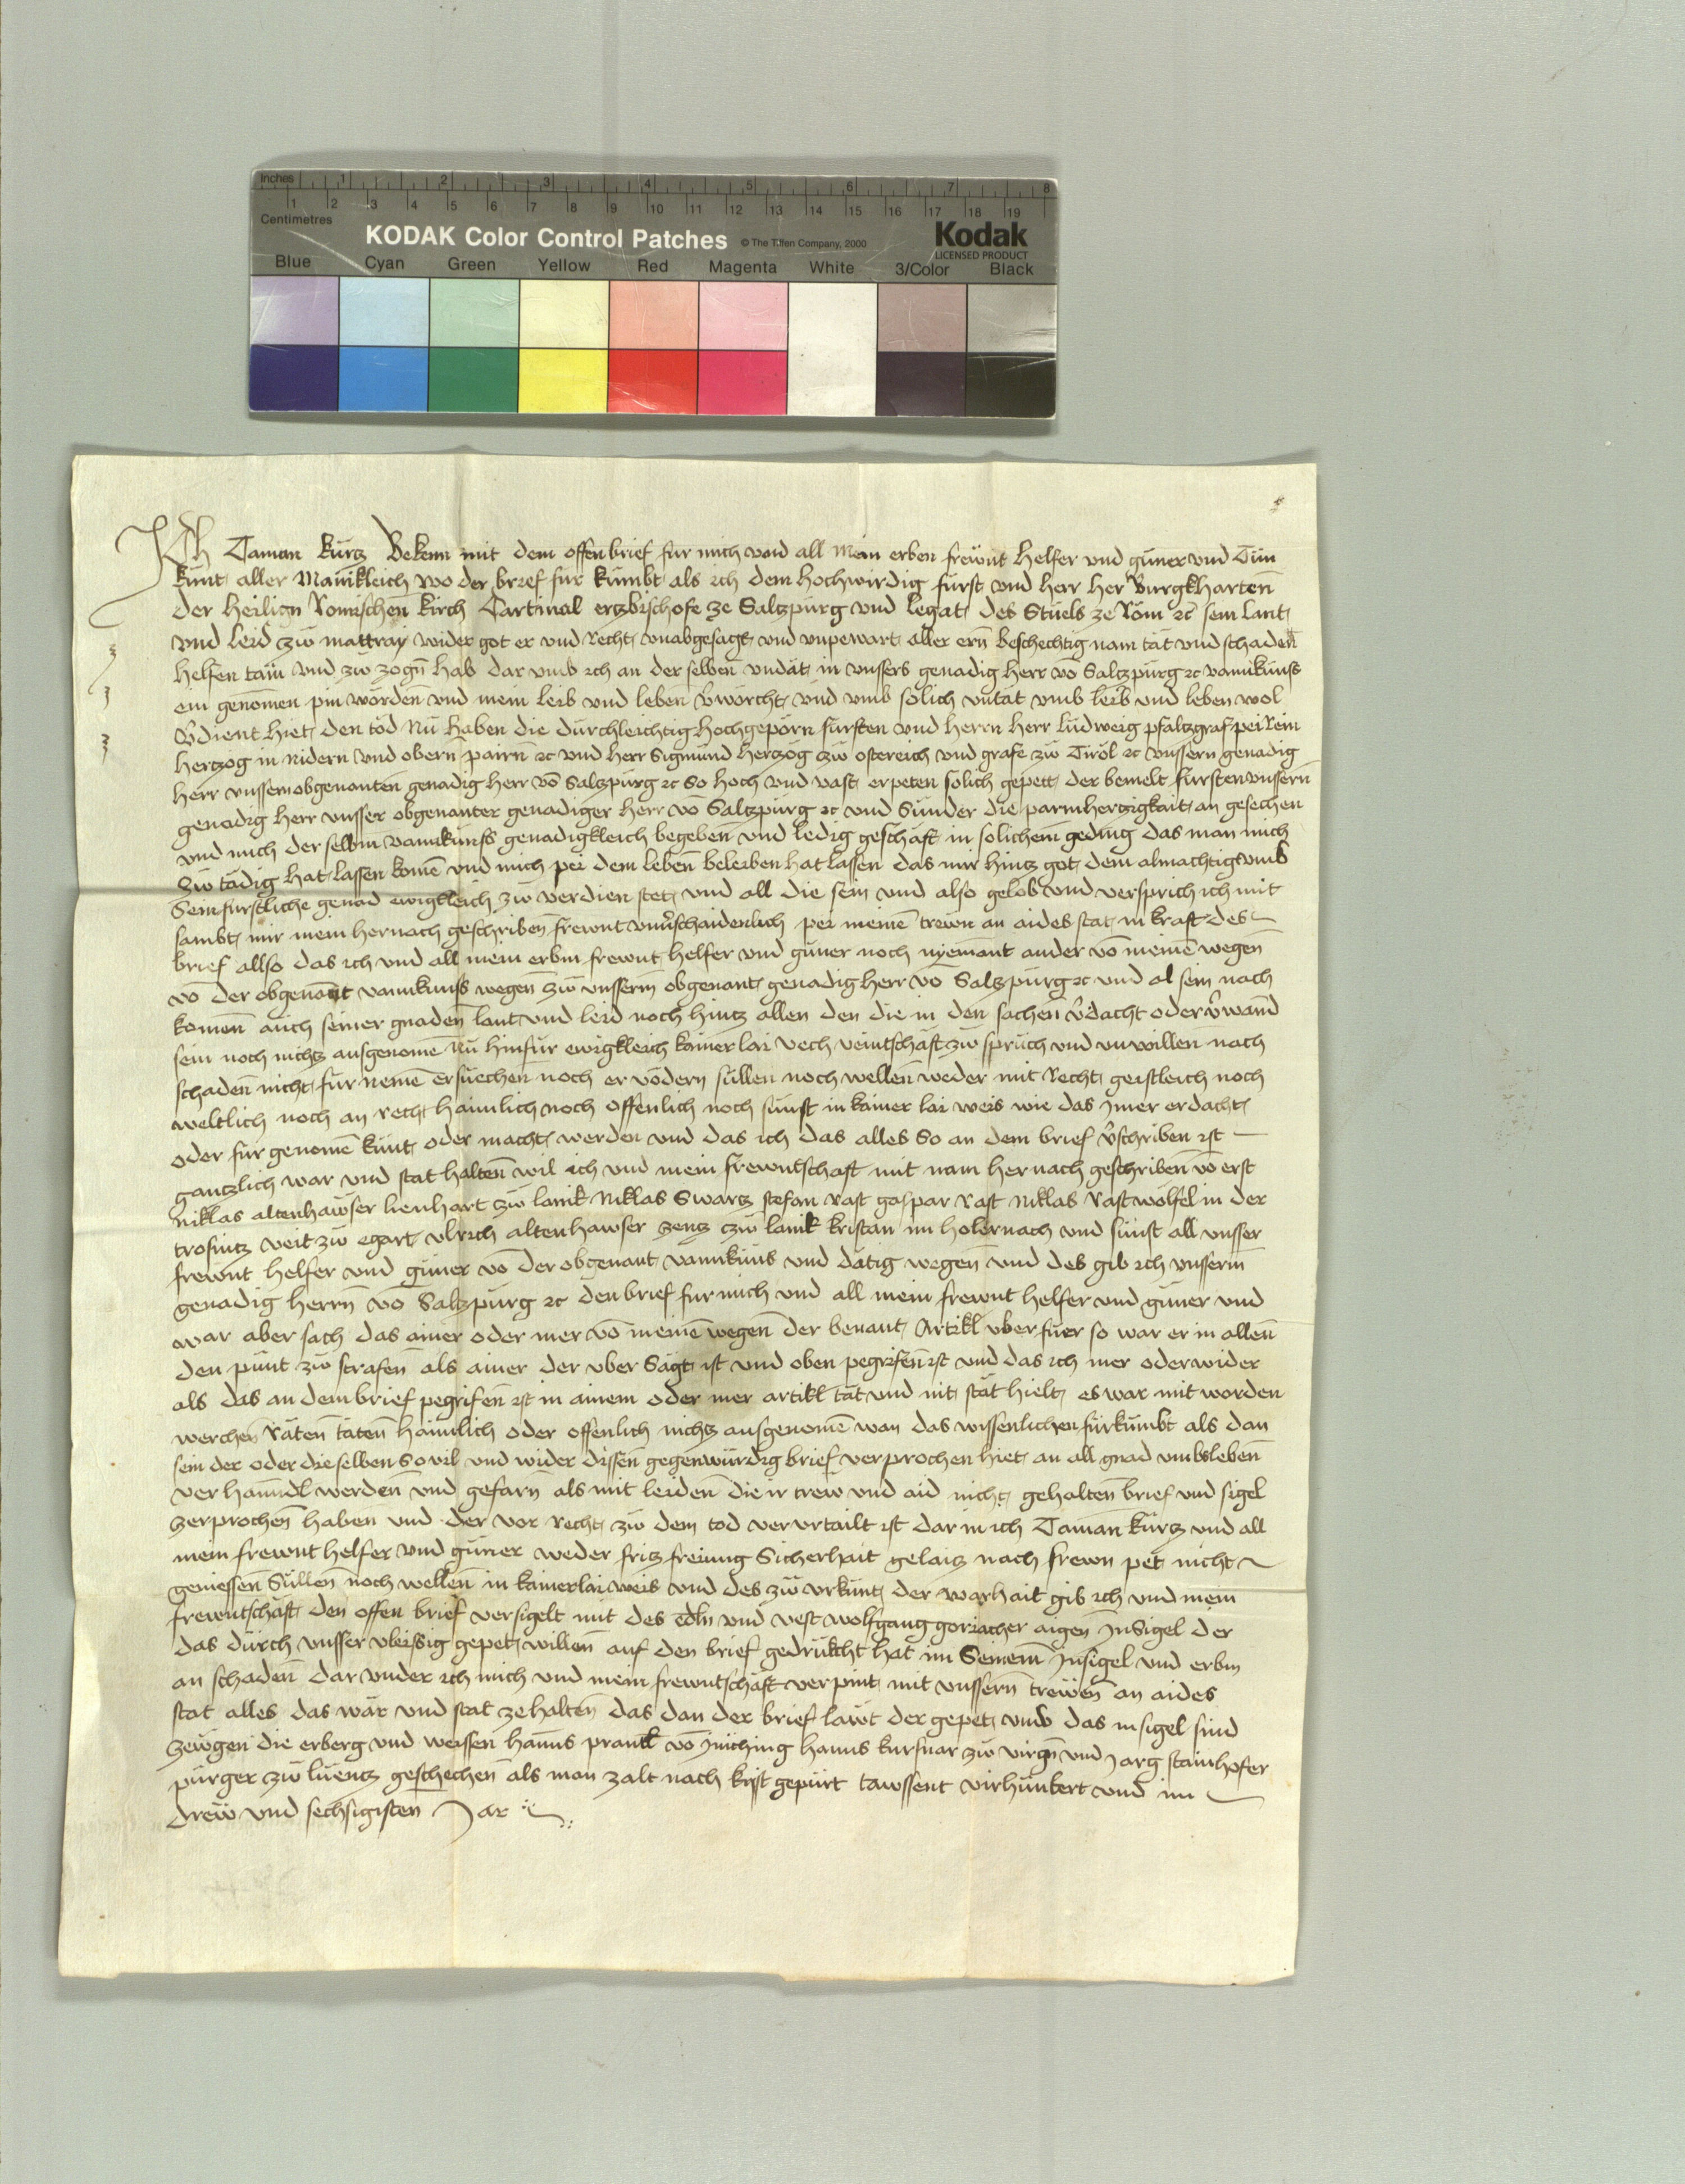 Inches 1 2 3 4 5 6 7 8
Centimetres 1 2 3 4 5 6 7 8 9 10 11 12 13 14 15 16 17 18 19
KODAK Color Control Patches © The Tiffen Company, 2000 Kodak
LICENSED PRODUCT
Blue Cyan Green Yellow Red Magenta White 3/Color Black
Ich Taman kurtz Bekenn mit dem offen brief fur mich vnd all Mein erben frewnt Helfer vnd guner vnd Tun
kunt aller Manikleich wo der brief fur kumbt als ich dem Hochwirdig furst vnd herr Her Burgkharten
der Heilign Romischen kirch Cartinal ertzbischofe ze Saltzpurg vnd legat des Stuels ze Rom ꝛc sein lant
vnd leid zw mattray wider got er vnd Recht vnabgesagt vnd vnpewart aller ern beschechtig nam tat vnd schaden
helfen tain vnd zw zogn hab dar vmb ich an der selben vndat in vnssers genadig herr vō Saltzpurg ꝛc vannkunss
ein genomen pin worden vnd mein leib vnd leben v̄worcht vnd vmb solich vntat vmb leib vnd leben wol
v̄dient hiet den tod Nu haben die durchleichtig hochgeporn fursten vnd herrn herr ludweig pfaltzgraf pei Rein
hertzog in Nidern vnd obern pairn ꝛc vnd herr Sigmund hertzog zw ostereich vnd grafe zw Tirol ꝛc vnssern genadig
herr vnssern obgenanten genadig herr vō Saltzpurg ꝛc So hoch vnd vast erpeten solich gepett der bemelt fursten vnssern
genadig herr vnsser obgenanter genadiger herr vō Saltzpurg ꝛc vnd Sunder die parmhertzigkait an gesechen
vnd mich der selbin vannkunss genadigkleich begeben vnd ledig geschaft in solichem geding das man mich
zw tadig hat lassen komē vnd mich pei dem leben beleiben hat lassen das mir hintz got dem almachtig vmb
Sein furstliche genad ewigkleich zw verdien stet vnd all die sein vnd also gelob vnd versprich ich mit
sambt mir mein hernach geschriben frewnt vnv̄schaidenlich pei meinē trewn an aides stat in kraft des
brief allso das ich vnd all mein erbin frewnt helfer vnd guner noch nyemant ander vō meinē wegen
vō der obgenant vannkunss wegen zw vnsserm obgenant genadig herr vō Saltzpurg ꝛc vnd al sein nach
komen auch seiner gnaden lant vnd leid noch hintz allen den die in den sachen v̄dacht oder v̄wand
sein noch nichtz ausgenomē nu hinfur ewigkleich kainer lai vech veintschaft zw spruch vnd vnwillen nach
schaden nicht fur nemē ersuechen noch er vodern sullen noch wellen weder mit Recht geistleich noch
weltlich noch an recht haimlich noch offenlich noch sunst in kainer lai weis wie das ymer erdacht
oder fur genomē kunt oder macht werden vnd das ich das alles So an dem brief v̄schriben ist
gantzlich war vnd stat halten wil ich vnd mein frewntschaft mit nam her nach geschriben vō erst
Niklas altenhawser lienhart zw lanik Niklas Swartz stefan Rast gaspar Rast Niklas Rast wolfel in der
trosintz veit zw egart vlrich altenhawser zentz czw lanik kristan im holernach vnd sunst all vnsser
frewnt helfer vnd guner vō der obgenant vannkuns vnd datig wegen vnd des gib ich vnsserm
genadig herrn vō Saltzpurg ꝛc den brief fur mich vnd all mein frewnt helfer vnd guner vnd
war aber sach das ainer oder mer vō meinē wegen der benant Artikl vber fuer so war er in allen
den punt zw strafen als ainer der vber Sagt ist vnd oben pegrifen ist vnd das ich mer oder wider
als das an dem brief pegrifen ist in ainem oder mer artikl tat vnd nit stat hielt es war mit worden
werchen Raten taten haimlich oder offenlich nichtz ausgenomē wan das wissenlichen furkumbt als dan
sein der oder die selben So vil vnd wider dissen gegenwurdig brief verprochen hiet an all gnad vmbs leben
ver hanndl werden vnd gefarn als mit leiden die ir trew vnd aid nicht gehalten brief vnd sigel
zerprochen haben vnd der vor recht zw dem tod ver vrtailt ist dar in ich Taman kurtz vnd all
mein frewnt helfer vnd guner weder fritz freiung Sicherhait gelaitz nach frewn pet nicht
geniessen Sullen noch wellen in kainerlai weis vnd des zw vrkunt der warhait gib ich vnd mein
frewntschaft den offen brief versigelt mit des edln vnd vest wolfgang goriacher aigen InSigel der
das durch vnsser vleissig gepet willen auf den brief gedrukcht hat im Seinem Insigel vnd erbin
an schaden dar vnder ich mich vnd mein frewntschaft verpint mit vnssern trewen an aides
stat alles das war vnd stat ze halten das dan der brief lawt der gepet vmb das insigel sind
zewgen die erberg vnd weissen hanns prankl vō Iniching hanns kursnar zw virgn vnd Jorg stainhofer
purger zw luentz geschechen als man zalt nach krist gepurt tawssent virhunkert vnd im
drew vnd sechsigisten Jar